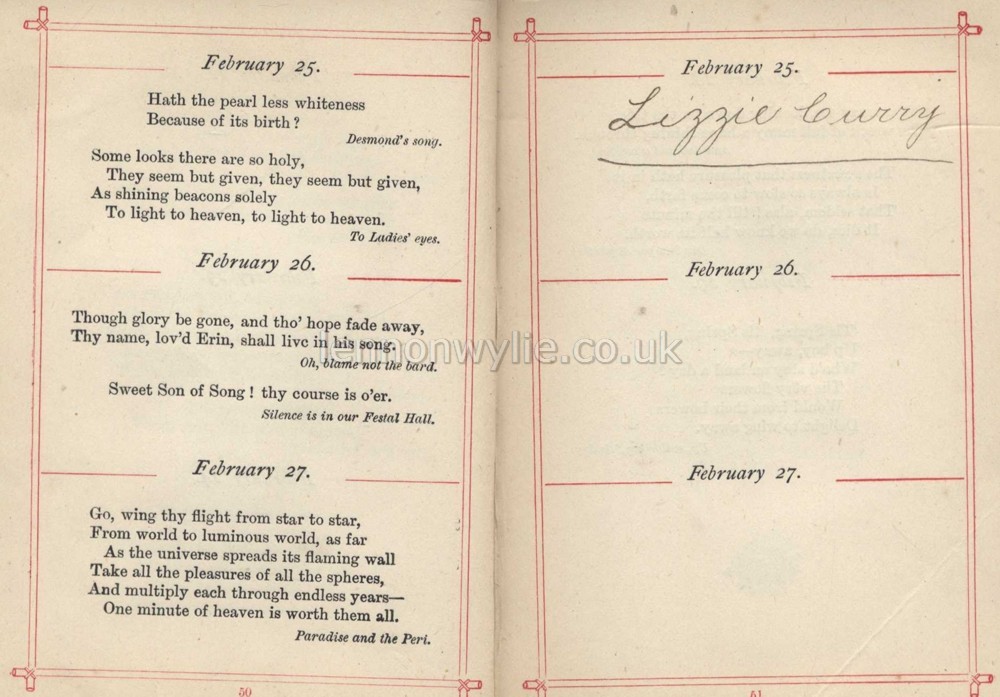 February 25.
Hath the pearl less whiteness
Because of its birth?
Desmond's song.
Some looks there are so holy,
They seem but given, they seem but given,
As shining beacons solely
To light to heaven, to light to heaven.
To Ladies' eyes.
February 26.
Though glory be gone, and tho' hope fade away,
Thy name, lov'd Erin, shall live in his song.
Oh, blame not the bard.
Sweet Son of Song! thy course is o'er.
Silence is in our Festal Hall.
February 27.
Go, wing thy flight from star to star,
From world to luminous world, as far
As the universe spreads its flaming wall
Take all the pleasures of all the spheres,
And multiply each through endless years—
One minute of heaven is worth them all.
Paradise and the Peri.
50
February 25.
Lizzie Curry
February 26.
February 27.
51
lennonwylie.co.uk